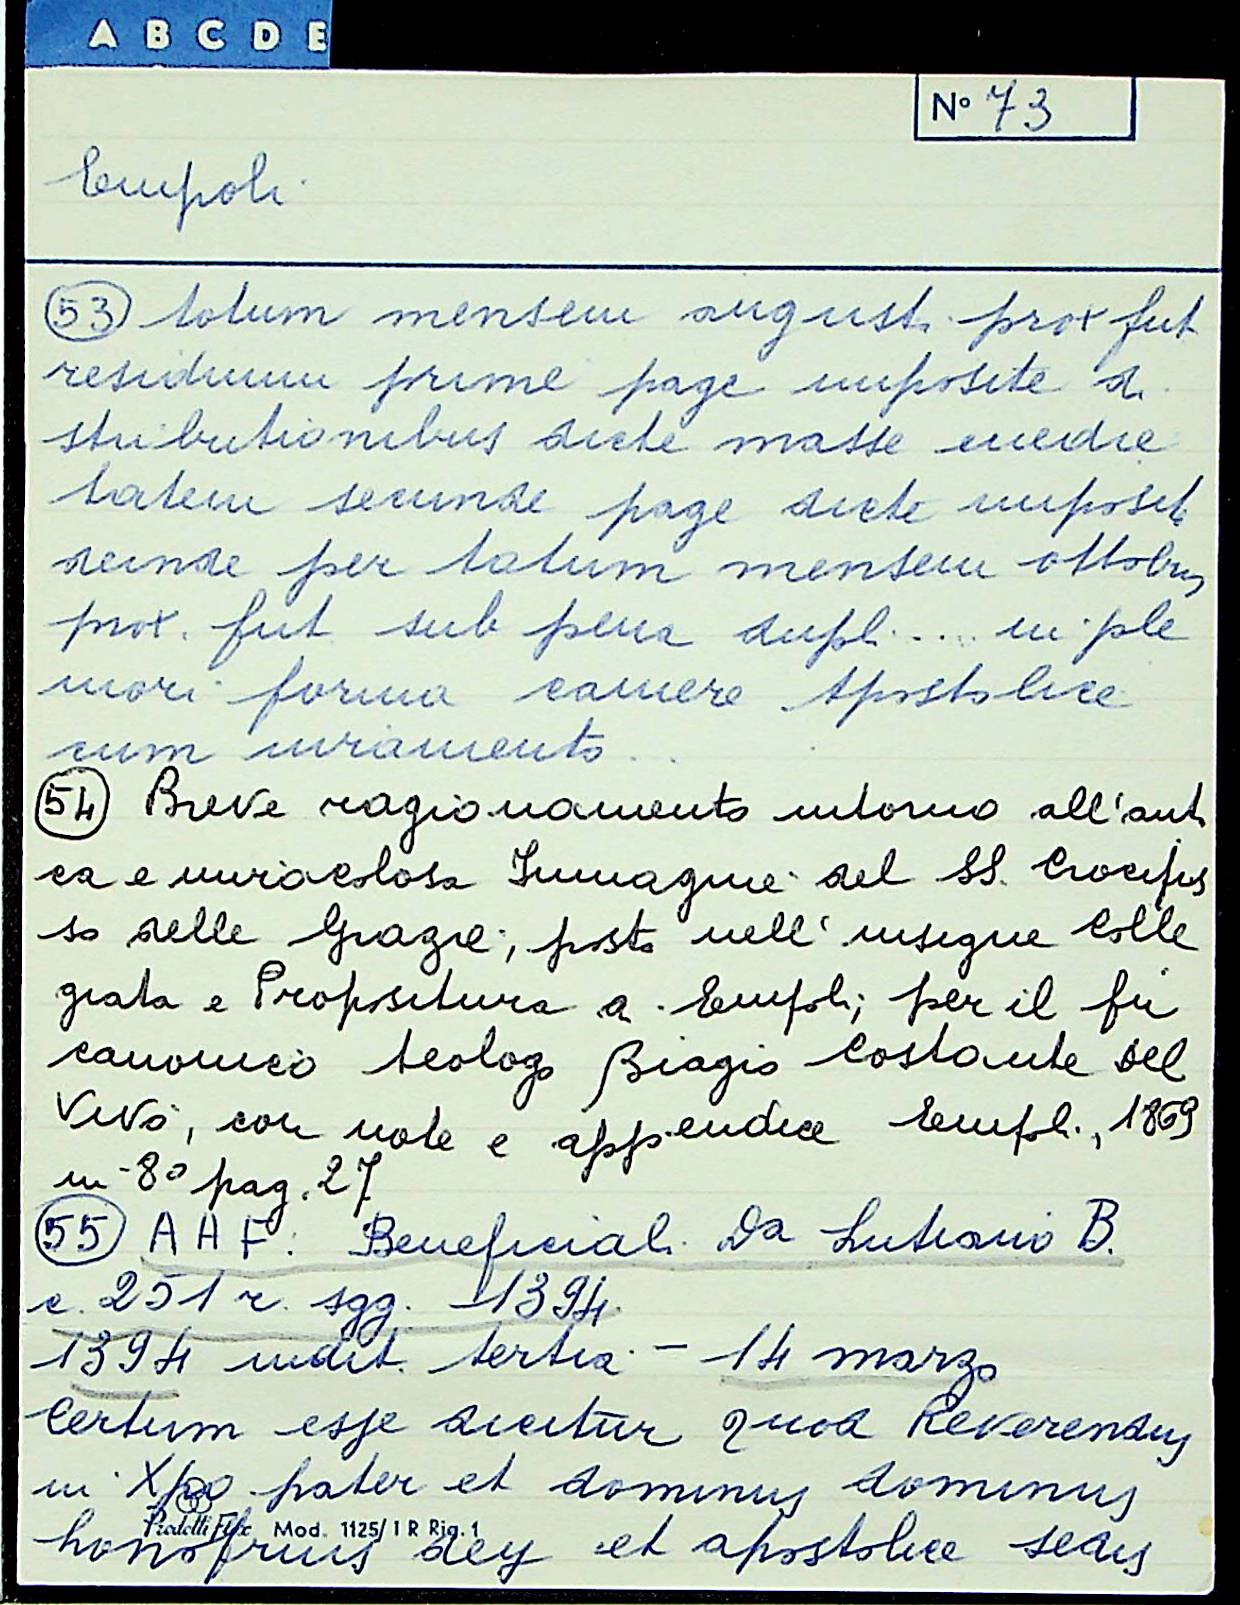 A B C D E
Nº 73
Empoli
53 totum mensem augusti prox fut
residuum prime page imposite di
stributionibus dicte masse medie
tatem secunde page dicte imposit
deinde per totum mensem ottobris
prox. fut sub pena dupli .... in ple
niori forma camere Apostolice
cum iuramento ...
54 Breve ragionamento intorno all'anti
ca e miracolosa Immagine del SS. Crocifis
so delle Grazie, posto nell'insigne Colle
giata e Propositura a Empoli; per il fu
canonico teologo Biagio Costante del
Vivo, con note e appendice Empoli, 1869
in-8º pag. 27
55 A A F. Beneficiali Da Lutiano B.
c. 251 r. sgg. - 1394
1394 indit. tertia - 14 marzo
Certum esse dicitur quod Reverendus
in Xpo pater et dominus dominus
Prodotti Flex Mod. 1125/1 R Rig. 1
honofrius dey et apostolice sedis